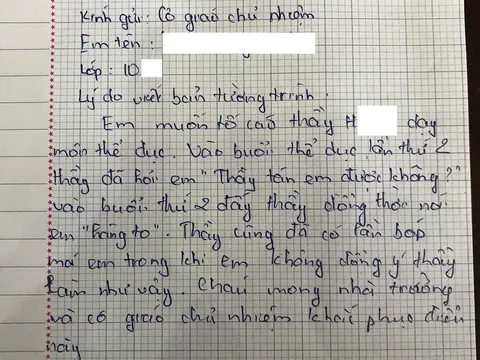 Kính gửi: Cô giáo chủ nhiệm
Em tên :
Lớp : 10
Lý do viết bản tường trình :
Em muốn tố cáo thầy H dạy
môn thể dục. Vào buổi thể dục lần thứ 2
thầy đã hỏi em "Thầy tán em được không?"
vào buổi thứ 2 đấy thầy đồng thời nói
em "hàng to". Thầy cũng đã có lần bóp
má em trong khi em không đồng ý thầy
làm như vậy. Cháu mong nhà trường
và cô giáo chủ nhiệm khắc phục điều
này